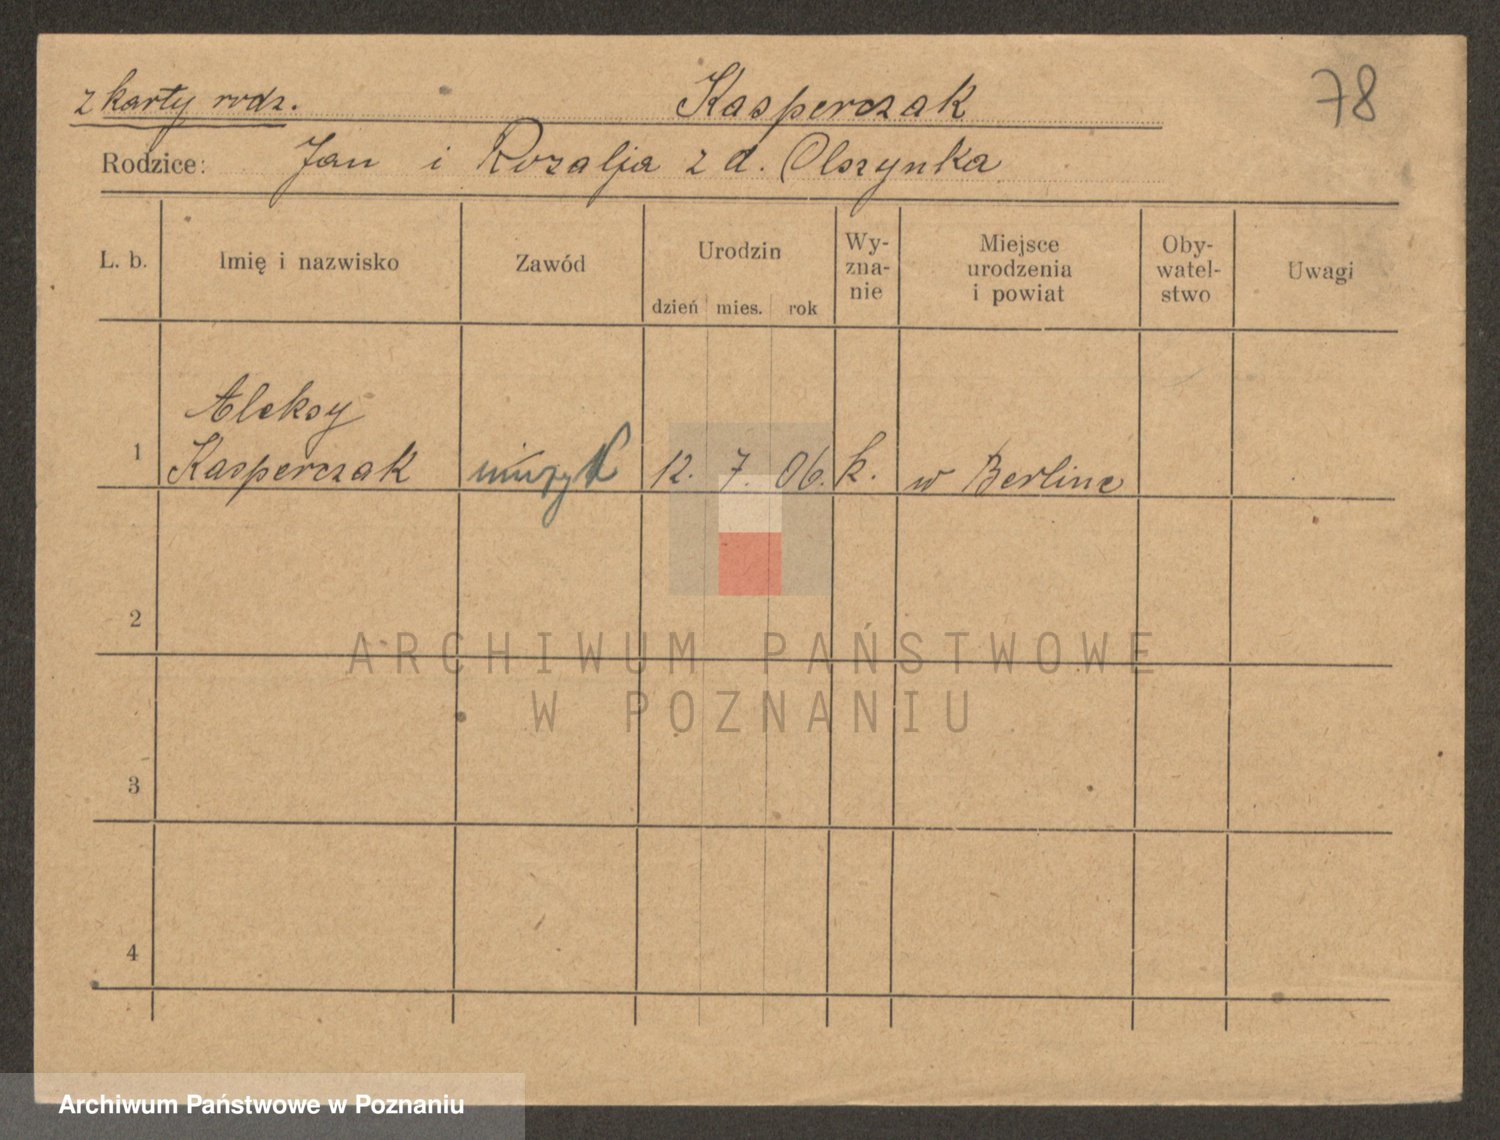 z karty rodz. Kasperczak 78
Rodzice: Jan i Rozalja z d. Olszynka
L. b. Imię i nazwisko Zawód Urodzin dzień mies. rok Wy-zna-nie Miejsce urodzenia i powiat Oby-watel-stwo Uwagi
Aleksy
1 Kasperczak muzyk 12. 7. 06. k. w Berlinie
2
ARCHIWUM PAŃSTWOWE
W POZNANIU
3
4
Archiwum Państwowe w Poznaniu